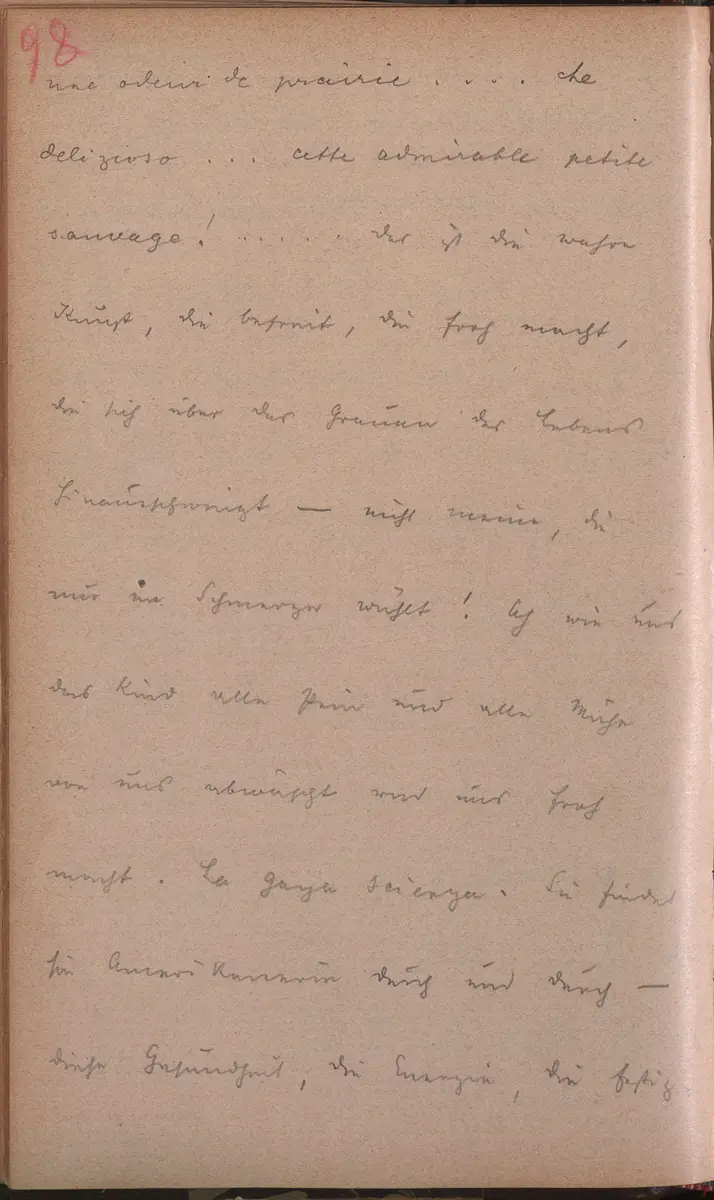 98
une odeur de prairie . . . . che
delizioso . . . cette admirable petite
sauvage! . . . . . das ist die wahre
Kunst, die befreit, die froh macht,
die sich über das Grauen des Lebens
hinausschwingt — nicht meine, die
nur im Schmerze wühlt! Ach wie uns
das Kind alle Pein und alle Mühe
von uns abwäscht und uns froh
macht. La gaya scienza. Sie findet
sie Amerikanerin durch und durch —
diese Gesundheit, die Energie, die